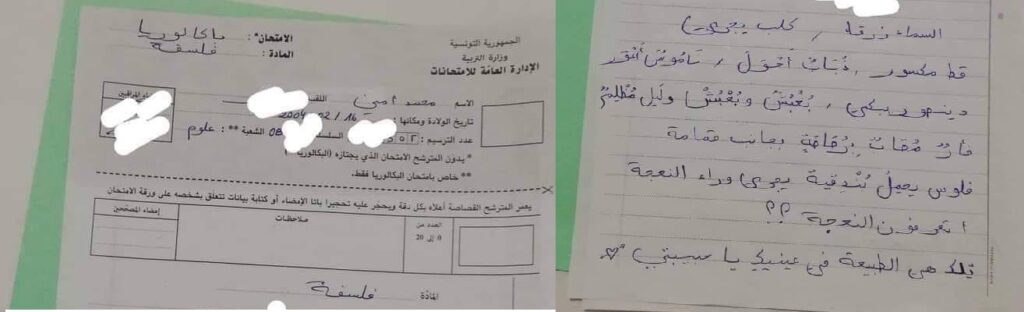 الجمهورية التونسية
وزارة التربية
الإدارة العامة للامتحانات
الامتحان* : باكالوريا
المادة : فلسفة
الاسم محمد أمين اللقب
تاريخ الولادة ومكانها : 16 / 02 / 2004
عدد الترسيم : السلسلة 08 الشعبة ** : علوم
* يدون المترشح الامتحان الذي يجتازه (البكالوريا
** خاص بامتحان البكالوريا فقط.
يعمر المترشح القصاصة أعلاه بكل دقة ويحجر عليه تحجيرا باتا الإمضاء أو كتابة بيانات تتعلق بشخصه على ورقة الامتحان
العدد من 0 إلى 20
ملاحظات
إمضاء المصححين
المادة فلسفة
السماء زرقاء / كلب يجري
قط مكسور , ذباب أحول / ناموس أشقر
يبكي , وليل مظلم
فأر مقات بزقاقة بجانب قمامة
فلوس يحمل بندقية يجري وراء النعجة
أتعرفون النعجة ؟؟
تلك هي الطبيعة في عينيكي يا حبيبتي ♡